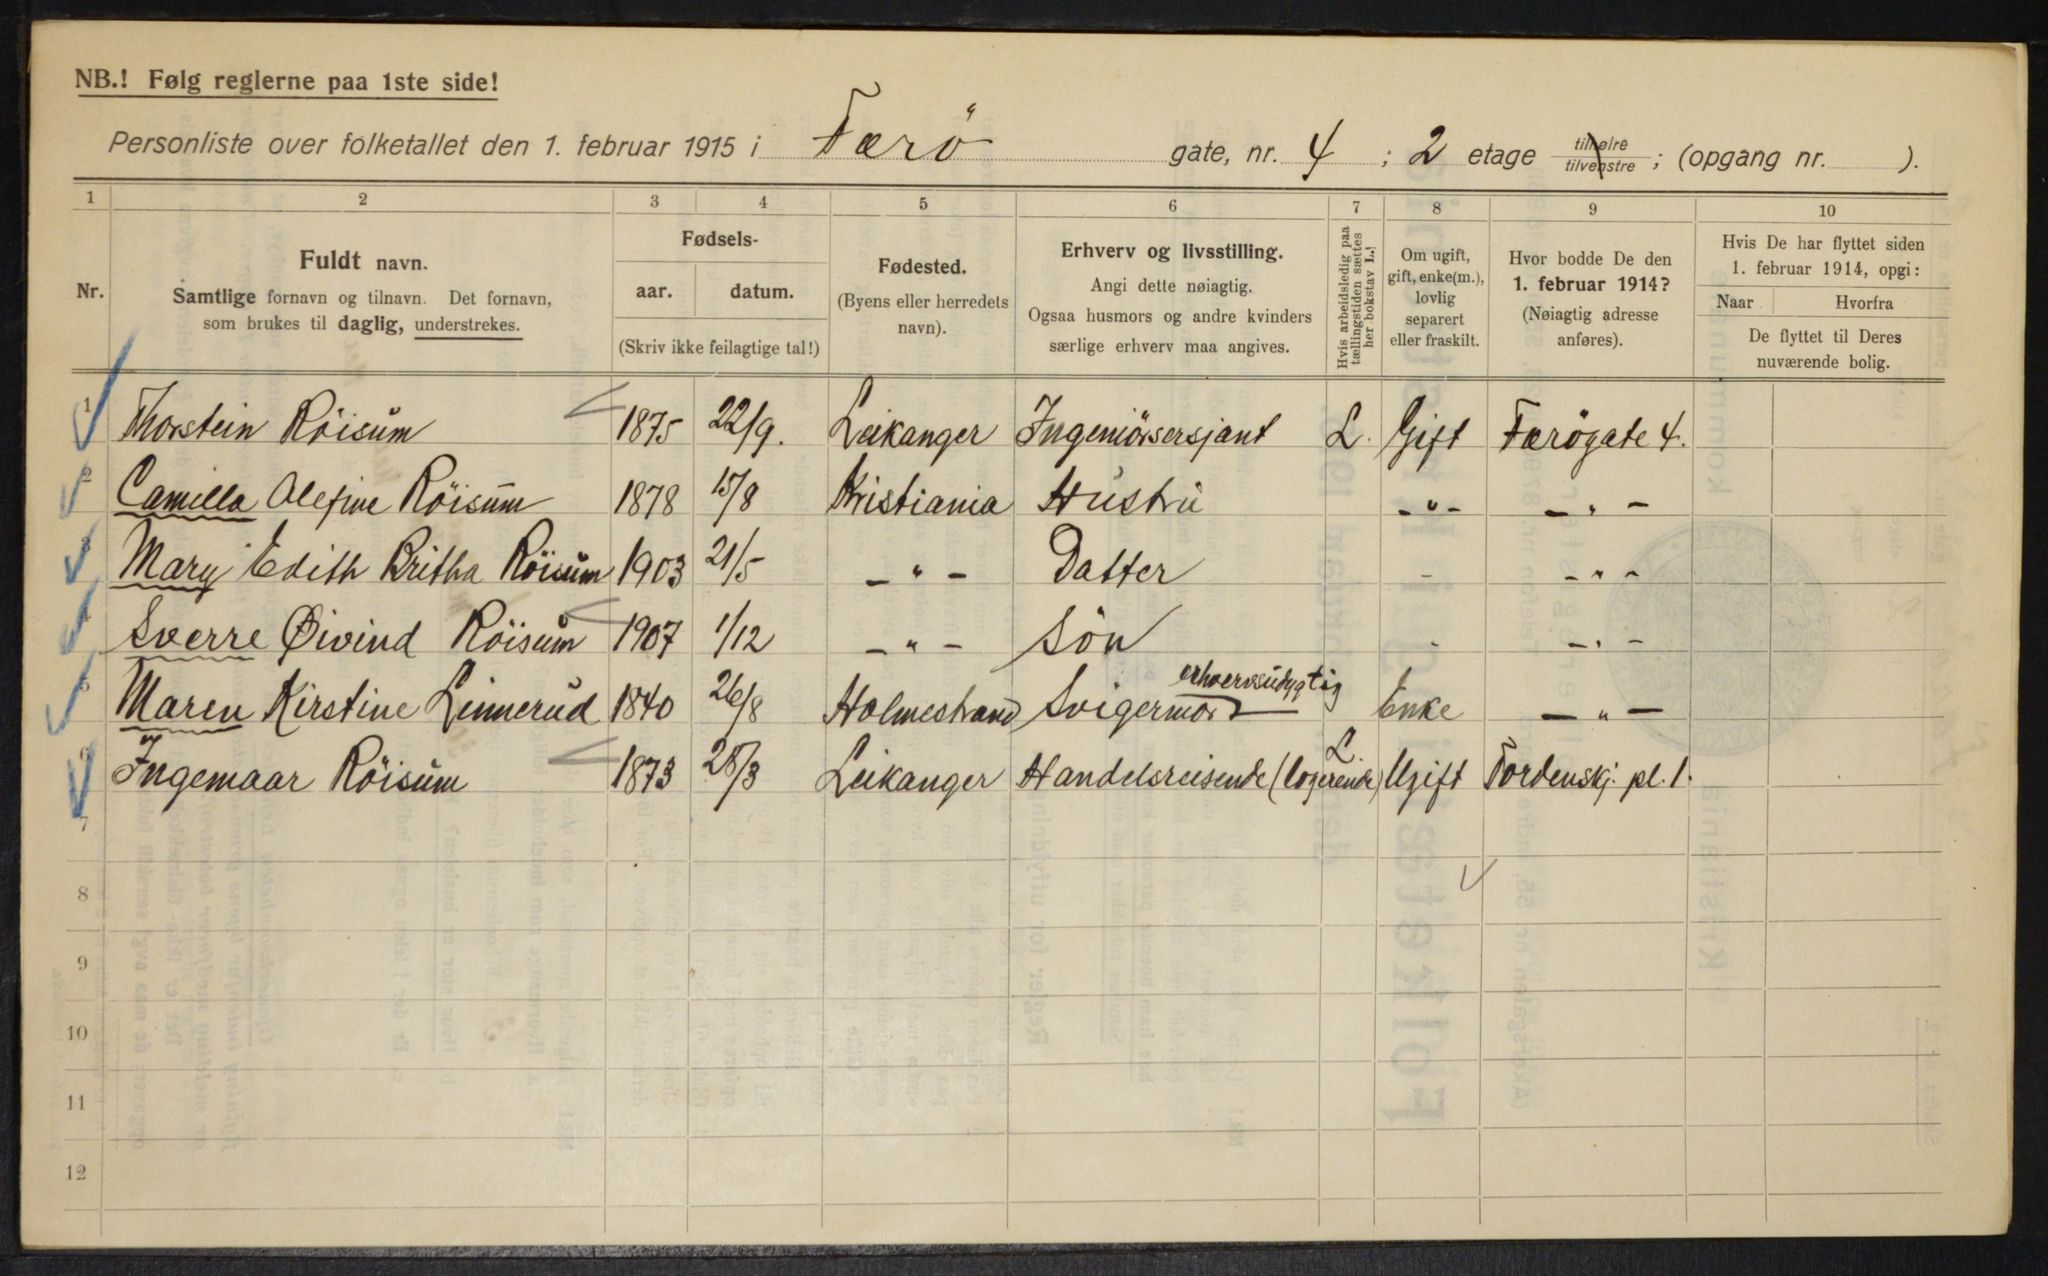 NB.! Følg reglerne paa 1ste side!
Personliste over folketallet den 1. februar 1915 i Færö gate, nr. 4 ; 2 etage tilhøire tilvenstre ; (opgang nr. ).
1 2 3 4 5 6 7 8 9 10
Nr.
Fuldt navn.
Samtlige fornavn og tilnavn. Det fornavn,
som brukes til daglig, understrekes.
Fødsels-
aar. datum.
(Skriv ikke feilagtige tal!)
Fødested.
(Byens eller herredets
navn).
Erhverv og livsstilling.
Angi dette nøiagtig.
Ogsaa husmors og andre kvinders
særlige erhverv maa angives.
Hvis arbeidsledig paa
tællingstiden sættes
her bokstav L.!
Om ugift,
gift, enke(m.),
lovlig
separert
eller fraskilt.
Hvor bodde De den
1. februar 1914?
(Nøiagtig adresse
anføres).
Hvis De har flyttet siden
1. februar 1914, opgi:
Naar Hvorfra
De flyttet til Deres
nuværende bolig.
1 Thorstein Röisum 1875 22/9. Leikanger Ingeniörsersjant L. Gift Færögate 4.
2 Camilla Olefine Röisum 1878 15/8 Kristiania Hustru -"- -"-
3 Mary Edith Britha Röisum 1903 21/5 -"- Datter - -"-
4 Sverre Øivind Röisum 1907 1/12 -"- Sön - -"-
5 Maren Kirstine Linnerud 1840 26/8 Holmestrand Svigermor erhvervsudygtig Enke -"-
6 Ingemaar Röisum 1873 28/3 Leikanger Handelsreisende (logerende) L. Ugift Tordenskj. pl. 1.
7
8
9
10
11
12